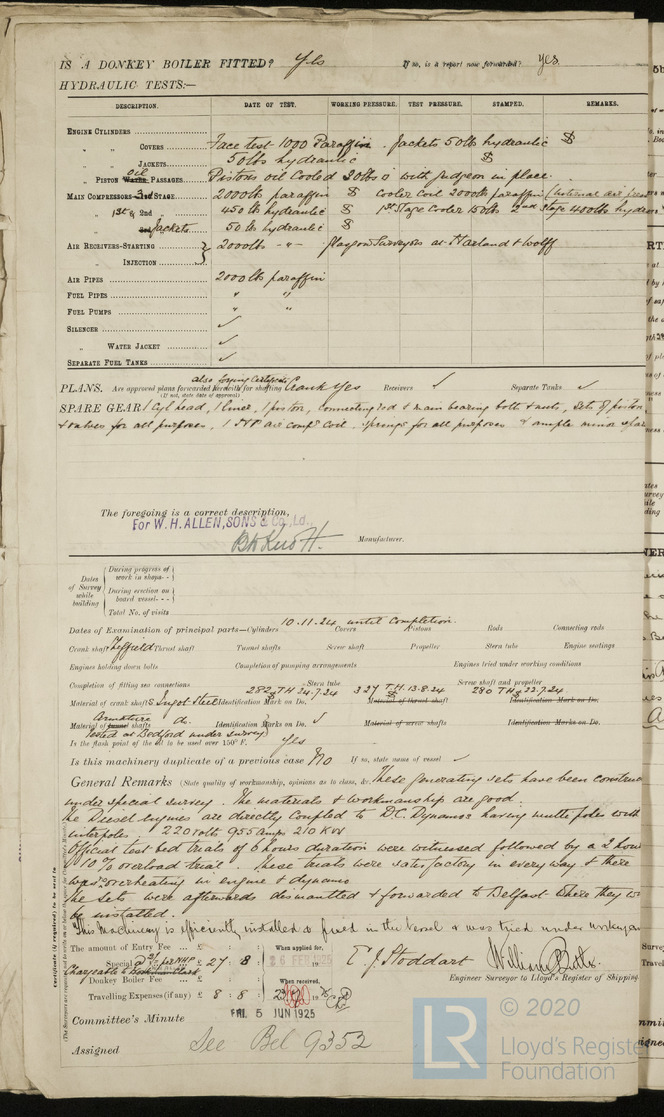 IS A DONKEY BOILER FITTED? Yes If so, is a report now forwarded? yes
HYDRAULIC TESTS:—
DESCRIPTION. DATE OF TEST. WORKING PRESSURE. TEST PRESSURE. STAMPED. REMARKS.
ENGINE CYLINDERS
„ „ COVERS Face test 1000 Paraffin. Jackets 50 lbs hydraulic
„ JACKETS 50 lbs hydraulic
„ PISTON Water oil PASSAGES Pistons oil Cooled 30 lbs with gudgeon in place.
MAIN COMPRESSORS 3rd STAGE 2000 lbs paraffin cooler coil 2000 lbs paraffin
„ 1st & 2nd 450 lbs hydraulic 1st Stage Cooler 150 lbs 2nd stage 400 lbs
„ Jackets 50 lbs hydraulic
AIR RECEIVERS-STARTING 2000 lbs -"- Glasgow Surveyors at Harland & Wolff
„ INJECTION
AIR PIPES 2000 lbs paraffin
FUEL PIPES " "
FUEL PUMPS " "
SILENCER ✓
„ WATER JACKET ✓
SEPARATE FUEL TANKS ✓
also forging certificates
PLANS. Are approved plans forwarded herewith for shafting Crank Yes Receivers ✓ Separate Tanks ✓
(If not, state date of approval)
SPARE GEAR 1 Cyl head, 1 liner, 1 piston, connecting rod & main bearing bolts & nuts, sets of piston
& valves for all purposes, 1 HP air comp coil, springs for all purposes & ample minor
The foregoing is a correct description,
For W. H. ALLEN, SONS & Co., Ld.,
Manufacturer.
Dates of Survey while building
During progress of work in shops - -
During erection on board vessel - - -
Total No. of visits
10.11.24 until Completion.
Dates of Examination of principal parts—Cylinders Covers Pistons Rods Connecting rods
Crank shaft Sheffield Thrust shaft Tunnel shafts Screw shaft Propeller Stern tube Engine seatings
Engines holding down bolts Completion of pumping arrangements Engines tried under working conditions
Completion of fitting sea connections Stern tube Screw shaft and propeller
282 TH 24.7.24 327 TH 13.8.24 280 TH 22.7.24
Material of crank shaft S. Ingot Steel Identification Mark on Do. Material of thrust shaft Identification Mark on Do.
Armature
Material of tunnel shafts do. Identification Marks on Do. ✓ Material of screw shafts Identification Marks on Do.
Tested at Bedford under survey
Is the flash point of the oil to be used over 150° F. Yes
Is this machinery duplicate of a previous case No If so, state name of vessel ✓
General Remarks (State quality of workmanship, opinions as to class, &c. These generating sets have been
under special survey. The materials & workmanship are good.
The Diesel engines are directly coupled to D.C. Dynamos having multi poles with
interpoles. 220 volts 955 amps 210 KW
Official test bed trials of 6 hours duration were witnessed followed by a 2 hour
10% overload trial. These trials were satisfactory in every way & there
was no overheating in engine & dynamo
The sets were afterwards dismantled & forwarded to Belfast where they
be installed.
This Machinery is efficiently installed & fixed in the Vessel & was tried under working
The amount of Entry Fee ... £ : : When applied for,
Special £ 27 : 8 26 FEB 1925
Donkey Boiler Fee ... £ : : When received,
Travelling Expenses (if any) £ 8 : 8 :
T. J. Stoddart
Engineer Surveyor to Lloyd's Register of Shipping.
Committee's Minute FRI. 5 JUN 1925
Assigned See Bel 9352
© 2020
LR
Lloyd's Register
Foundation